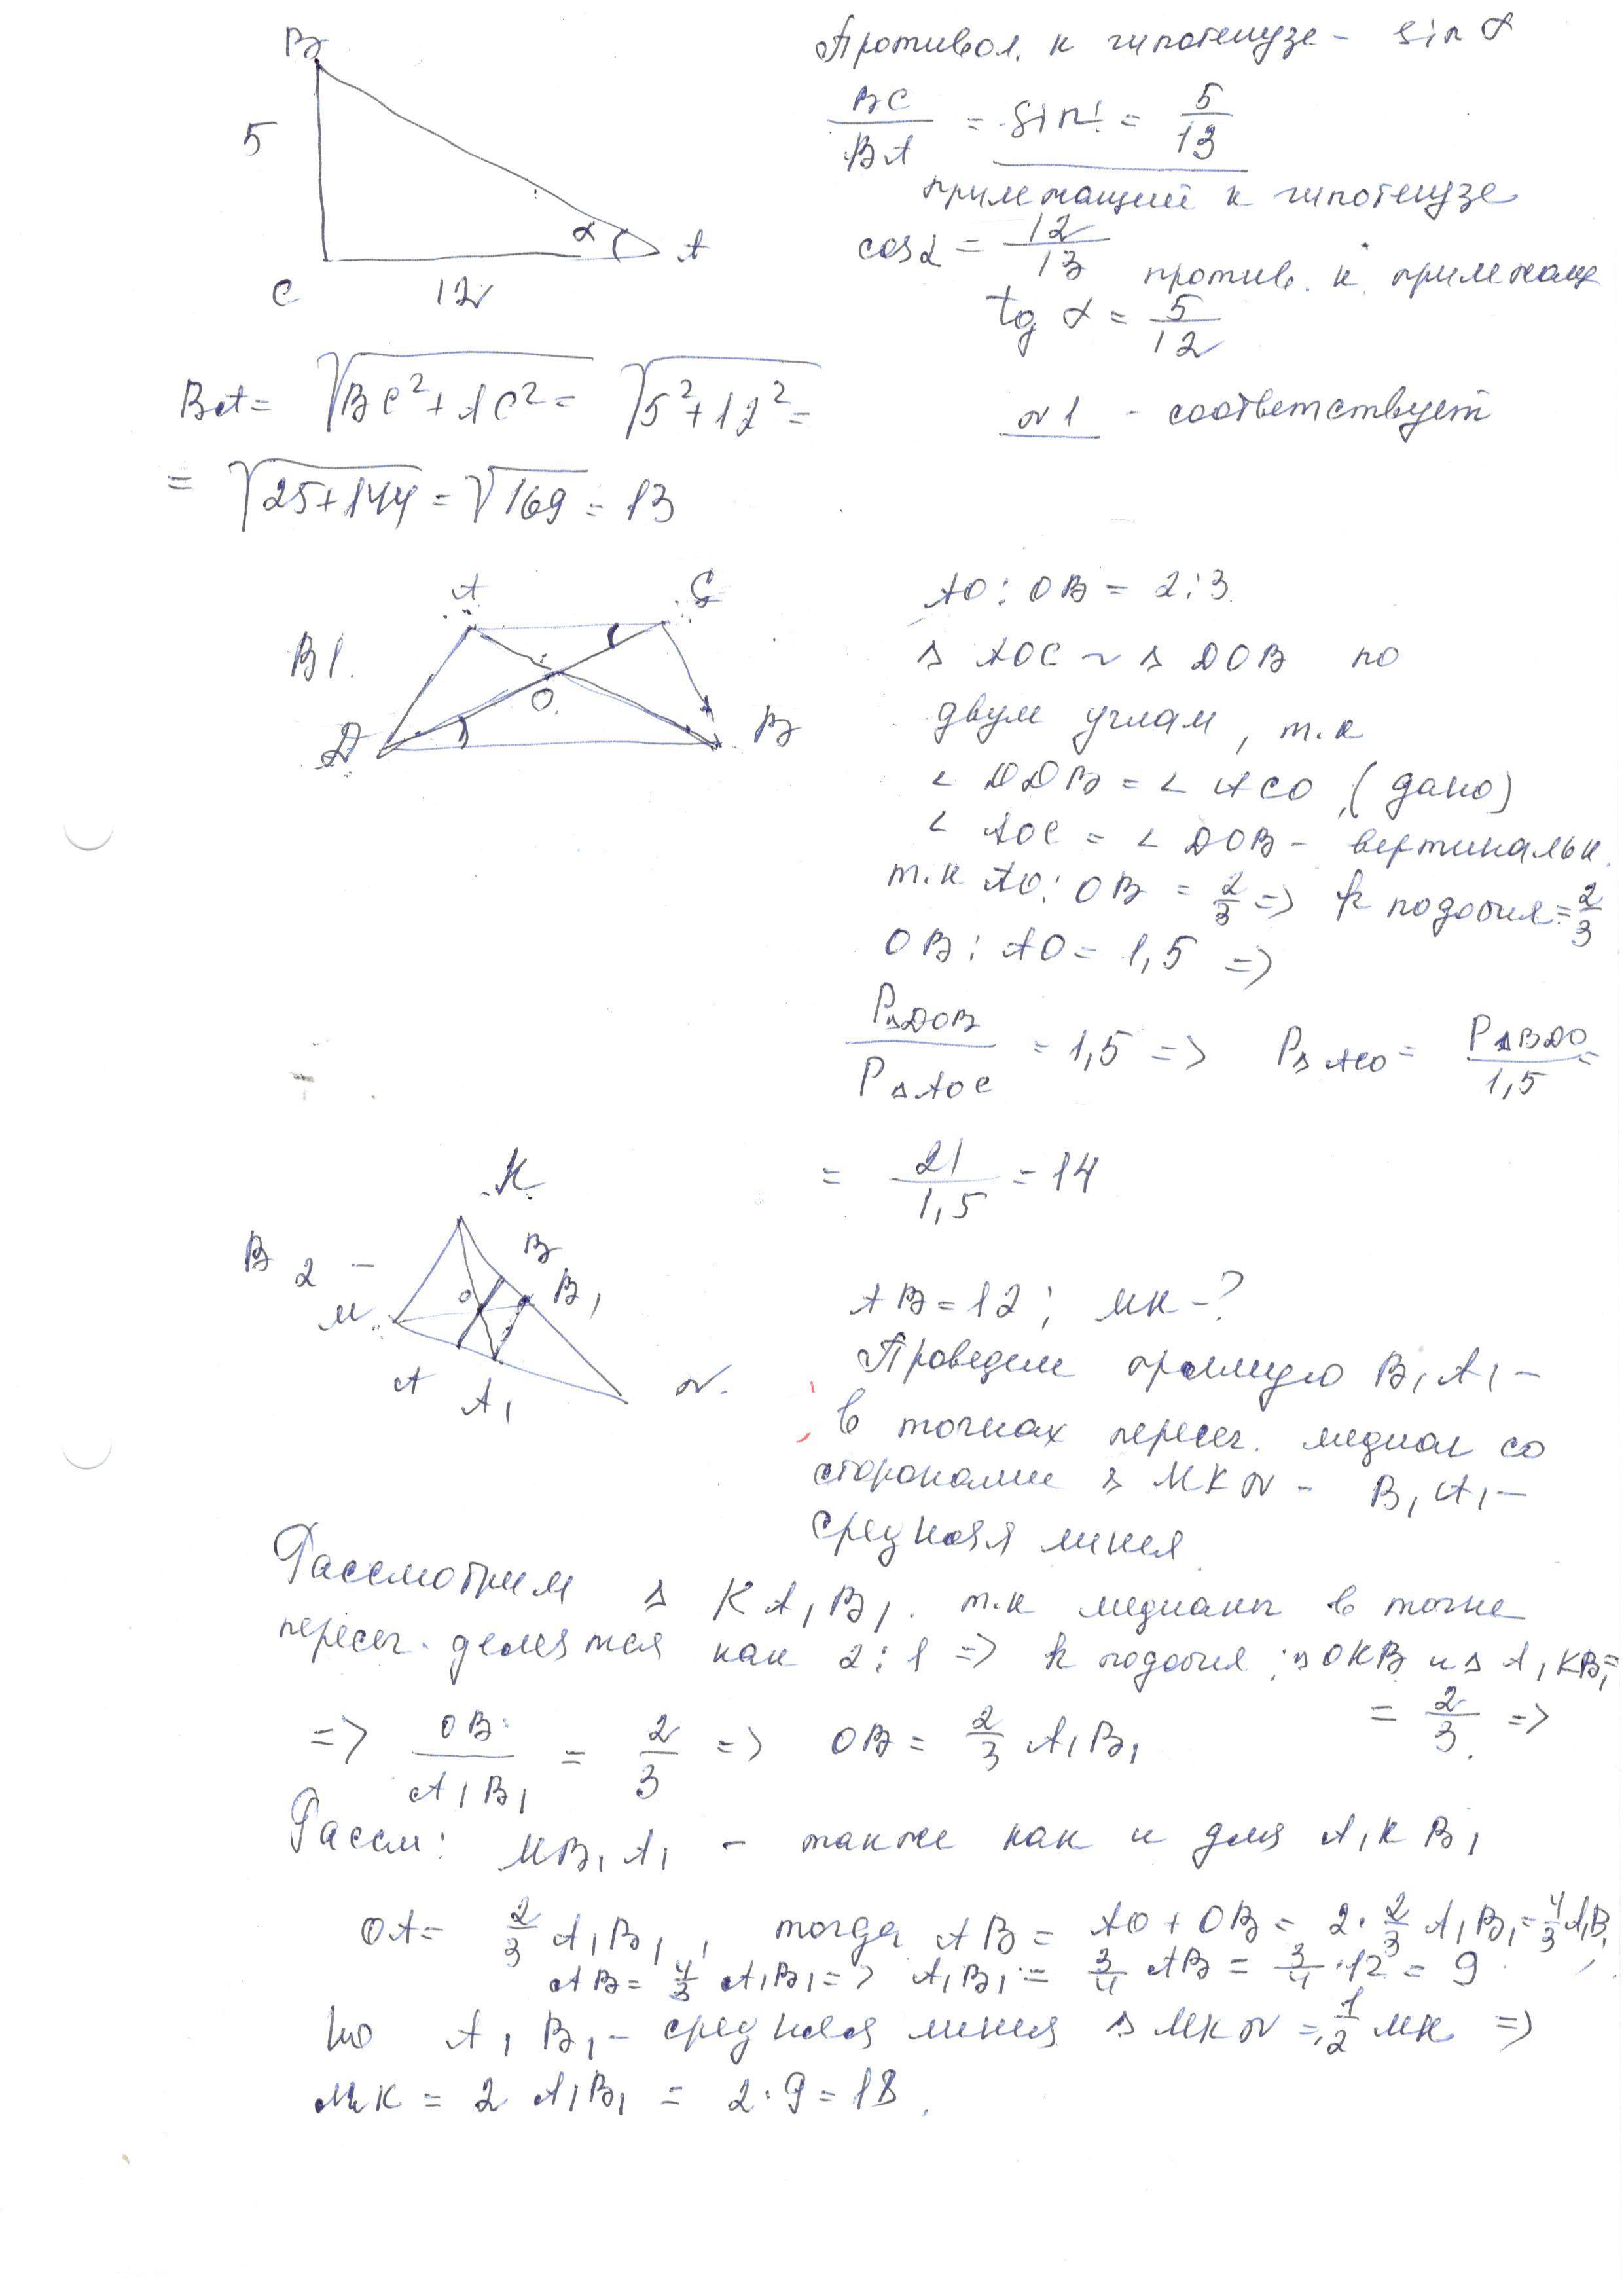 B
5
α
A
C
12
Противол. к гипотенузе - sin α
BC/BA = sin = 5/13
прилежащий к гипотенузе
cos α = 12/13
против. к прилежащ
tg α = 5/12
BA = √(BC² + AC²) = √(5² + 12²) =
= √(25+144) = √169 = 13
№1 - соответствует
B1.
A
C
O
D
B
AO : OB = 2:3
Δ AOC ~ Δ DOB по
двум углам, т.к
∠ ODB = ∠ ACO (дано)
∠ AOC = ∠ DOB - вертикальн.
т.к AO : OB = 2/3 => k подобия = 2/3
OB : AO = 1,5 =>
PΔDOB / PΔAOC = 1,5 => PΔACO = PΔBDO / 1,5 =
= 21/1,5 = 14
B 2 -
K
B
B₁
O
M
A
A₁
N.
AB = 12; MK - ?
Проведем прямую B₁A₁ -
в точках пересеч. медиан со
сторонами Δ MKN - B₁A₁ -
средняя линия
Рассмотрим Δ KA₁B₁. т.к медианы в точке
пересеч. делятся как 2:1 => k подобия ΔOKB и Δ A₁KB₁ =
= 2/3 =>
=> OB/A₁B₁ = 2/3 => OB = 2/3 A₁B₁
Рассм: MB₁A₁ - также как и для A₁KB₁
OA = 2/3 A₁B₁, тогда AB = AO + OB = 2 · 2/3 A₁B₁ = 4/3 A₁B₁
AB = 4/3 A₁B₁ => A₁B₁ = 3/4 AB = 3/4 · 12 = 9
но A₁B₁ - средняя линия Δ MKN = 1/2 MK =>
MK = 2 A₁B₁ = 2 · 9 = 18.